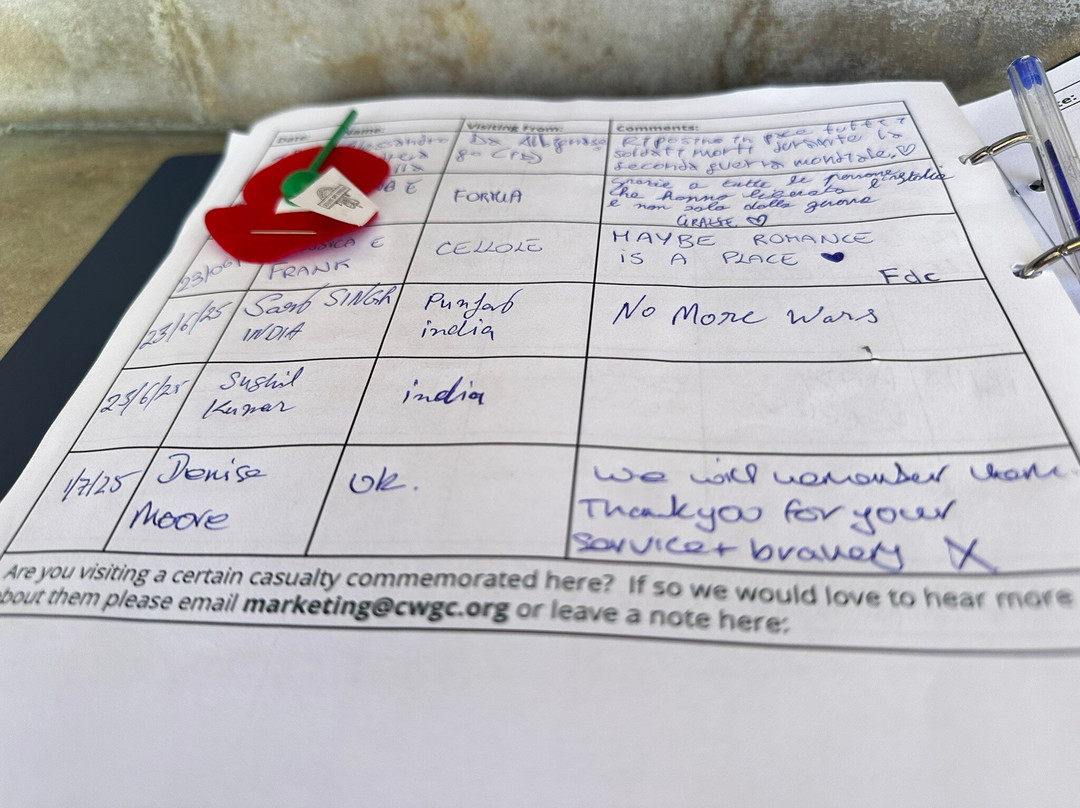 Name:
Visiting From:
Comments:
Riposino in pace tutti i
soldati morti durante la
seconda guerra mondiale. ♡
FORMIA
Grazie a tutte le persone
che hanno liberato
e non solo dalla guerra
GRAZIE ♡
23/06
E
FRANK
CELLOLE
MAYBE ROMANCE
IS A PLACE ♥
Fdc
23/6/25
SINGH
INDIA
Punjab
india
No More Wars
23/6/25
Sushil
Kumar
india
1/7/25
Denise
Moore
UK.
We will remember them.
Thankyou for your
service + bravery X
Are you visiting a certain casualty commemorated here? If so we would love to hear more
about them please email marketing@cwgc.org or leave a note here: